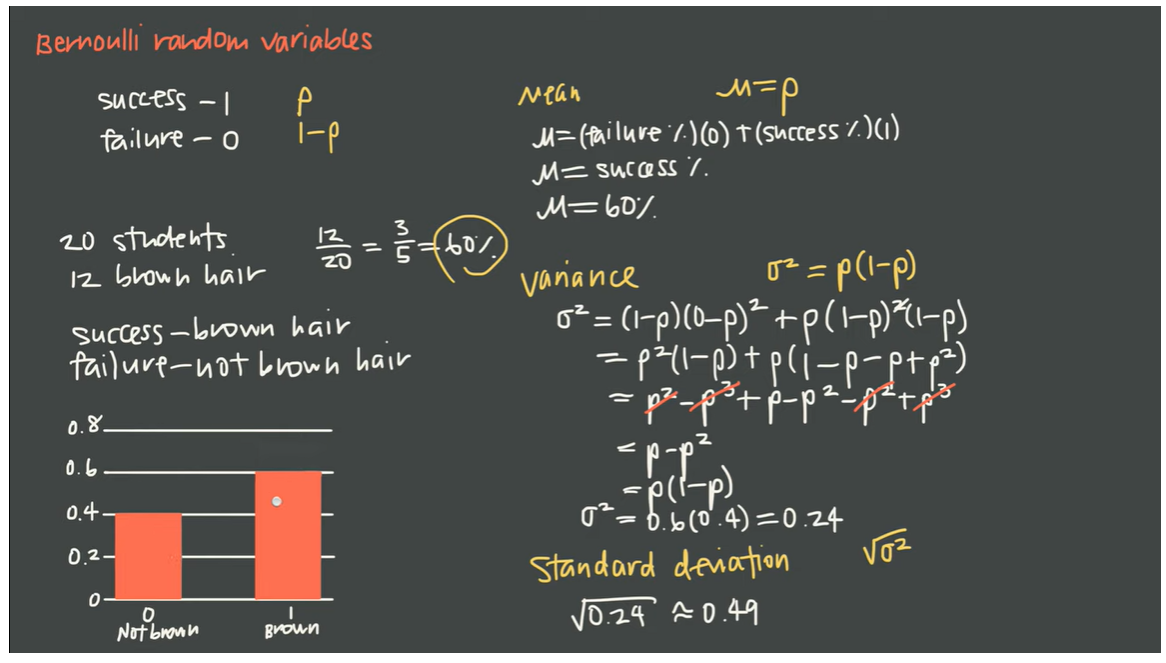 Bernoulli random variables
success – 1 p
failure – 0 1–p
20 students
12 brown hair
12/20 = 3/5 = 60%
success – brown hair
failure – not brown hair
0.8
0.6
0.4
0.2
0
0 1
Not brown Brown
Mean μ = p
μ = (failure %)(0) + (success %)(1)
μ = success %
μ = 60%
Variance σ² = p(1–p)
σ² = (1–p)(0–p)² + p(1–p)²(1–p)
= p²(1–p) + p(1–p–p+p²)
= p² – p³ + p – p² – p² + p³
= p – p²
= p(1–p)
σ² = 0.6(0.4) = 0.24
Standard deviation √σ²
√0.24 ≈ 0.49